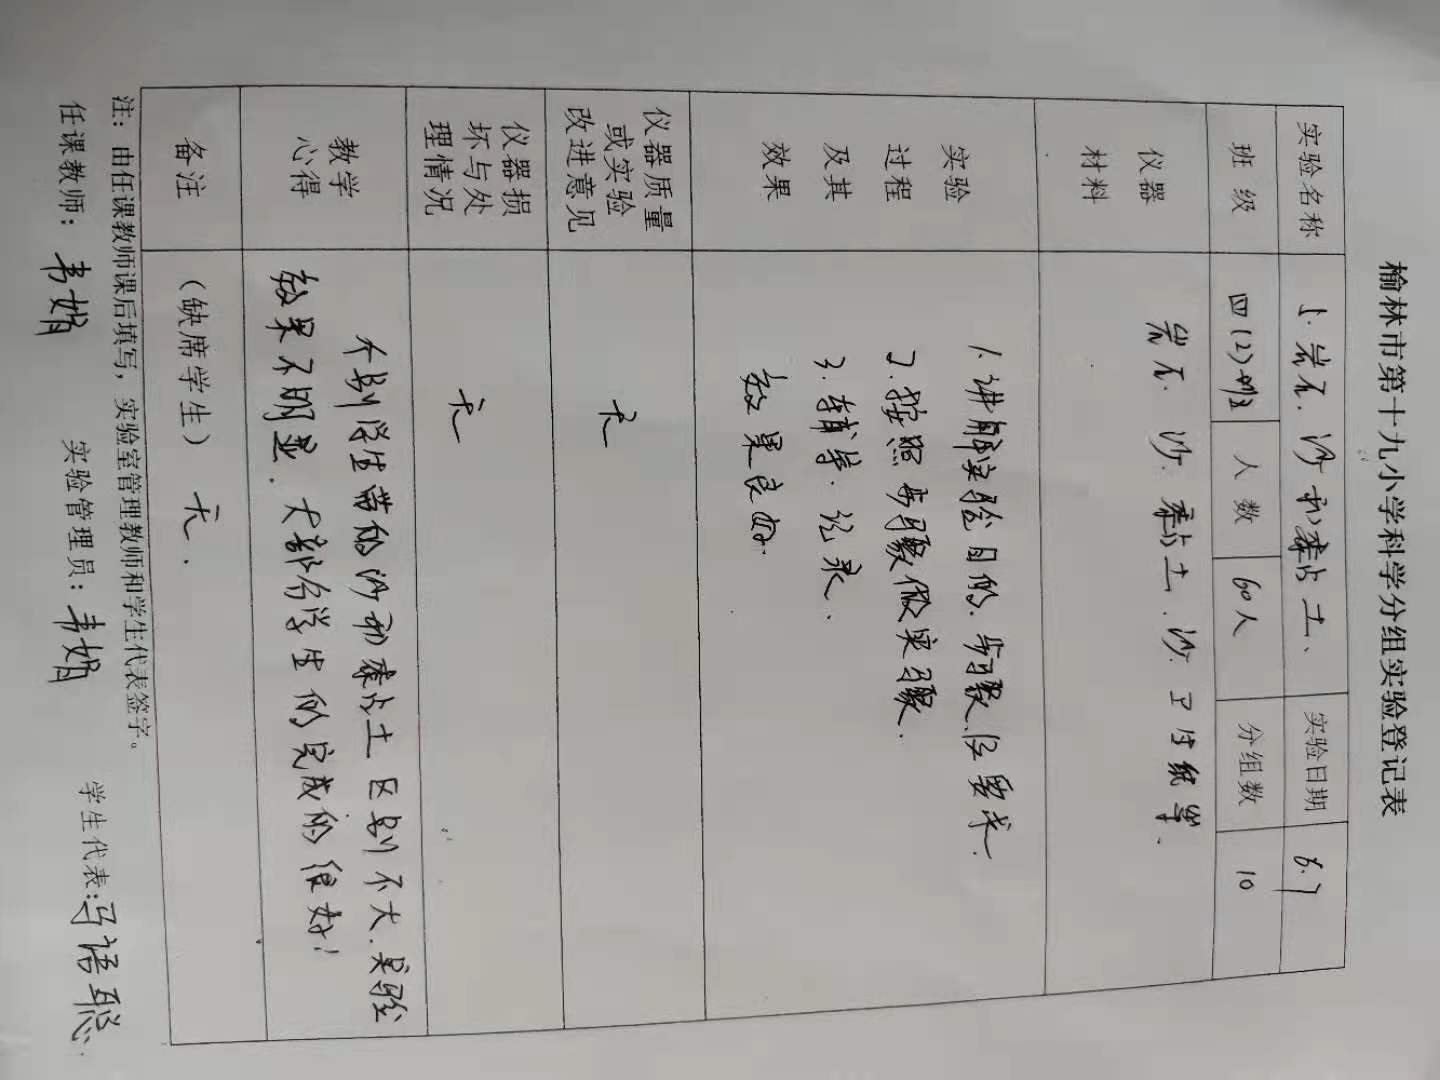 榆林市第十九小学科学分组实验登记表
实验名称 1.岩石、沙和黏土、 实验日期 6.7
班 级 四(2)班 人 数 60人 分组数 10
仪器材料 岩石、沙、黏土、沙、卫生纸等.
实验过程及其效果
1.讲解实验目的、步骤、及要求.
2.按照步骤做实骤.
3.辅导、记录.
效果良好.
仪器质量或实验改进意见 无
仪器损坏与处理情况 无
教学心得
个别学生带的沙和黏土区别不大.实验
效果不明显.大部分学生们完成的很好!
备注 (缺席学生) 无.
注：由任课教师课后填写，实验室管理教师和学生代表签字。
任课教师：韦娟 实验管理员：韦娟 学生代表：马语聪